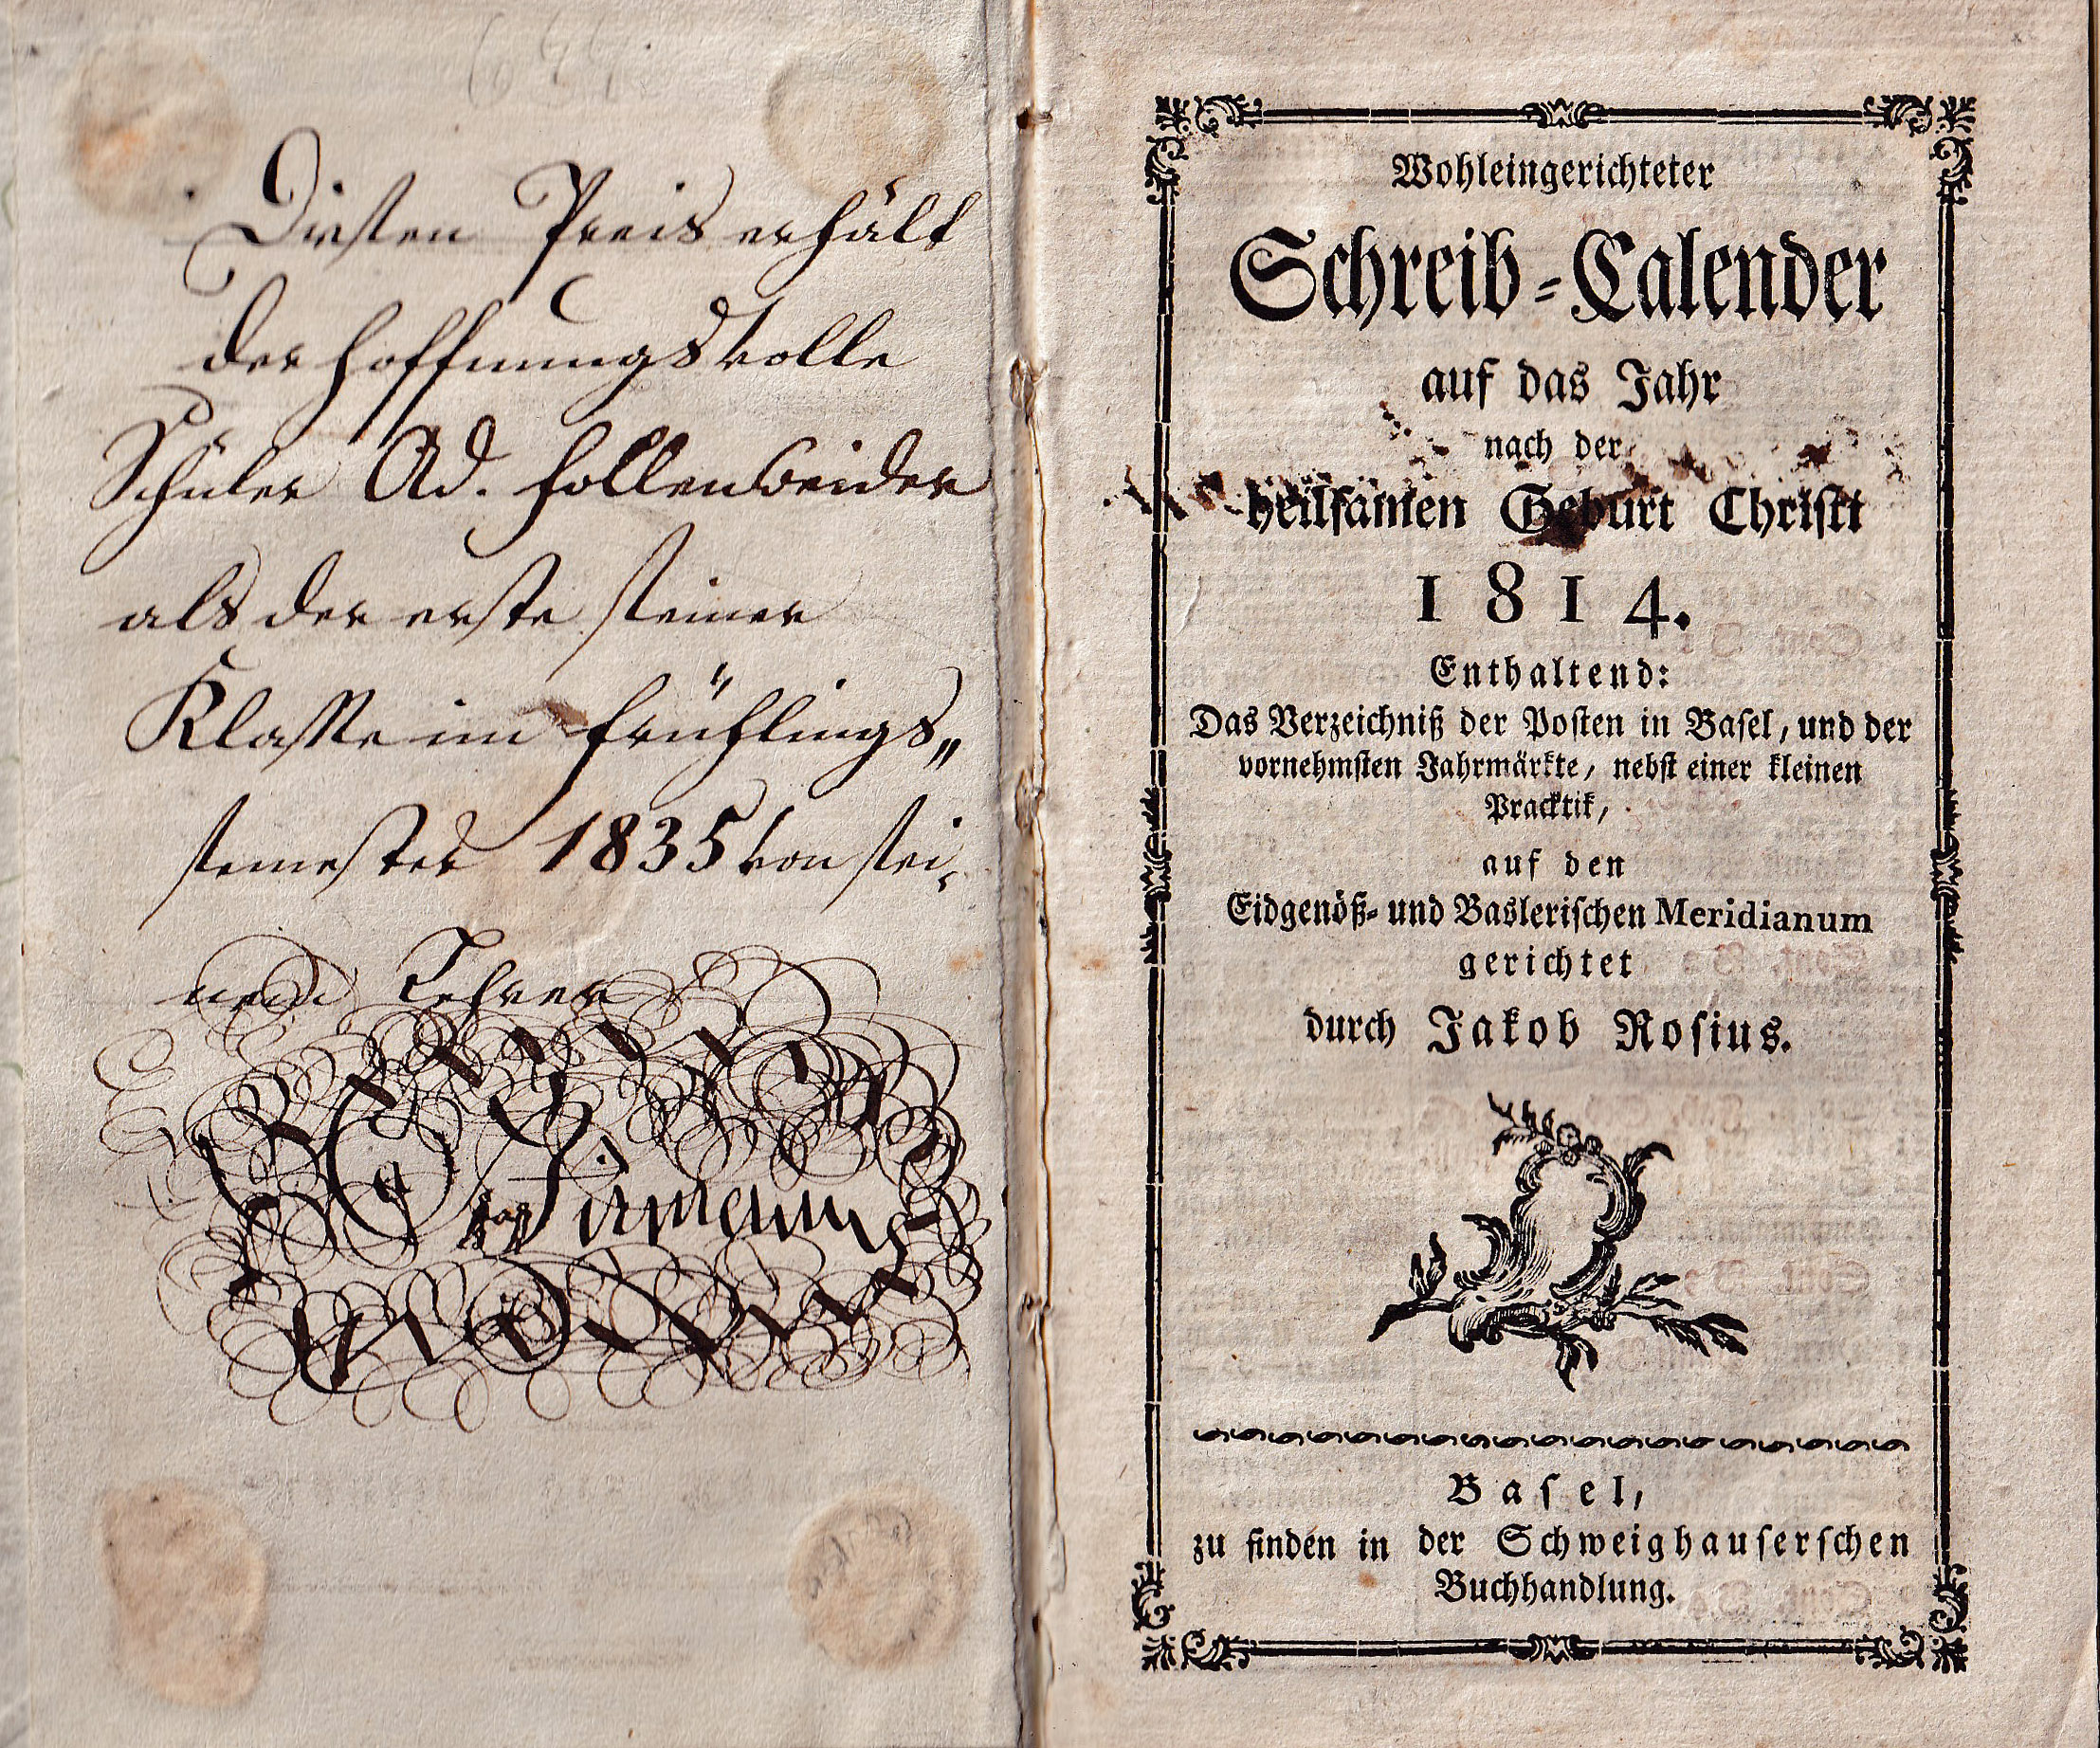 Diesen Preis erhält
der hoffnungsvolle
Schüler Ad. Hollenweider
als der erste seiner
Klasse im Frühlings„
semester 1835 von sei„
nem Lehrer
Wohleingerichteter
Schreib-Calender
auf das Jahr
nach der
heilsamen Geburt Christi
1814.
Enthaltend:
Das Verzeichniß der Posten in Basel, und der
vornehmsten Jahrmärkte, nebst einer kleinen
Pracktik,
auf den
Eidgenöß- und Baslerischen Meridianum
gerichtet
durch Jakob Rosius.
Basel,
zu finden in der Schweighauserschen
Buchhandlung.